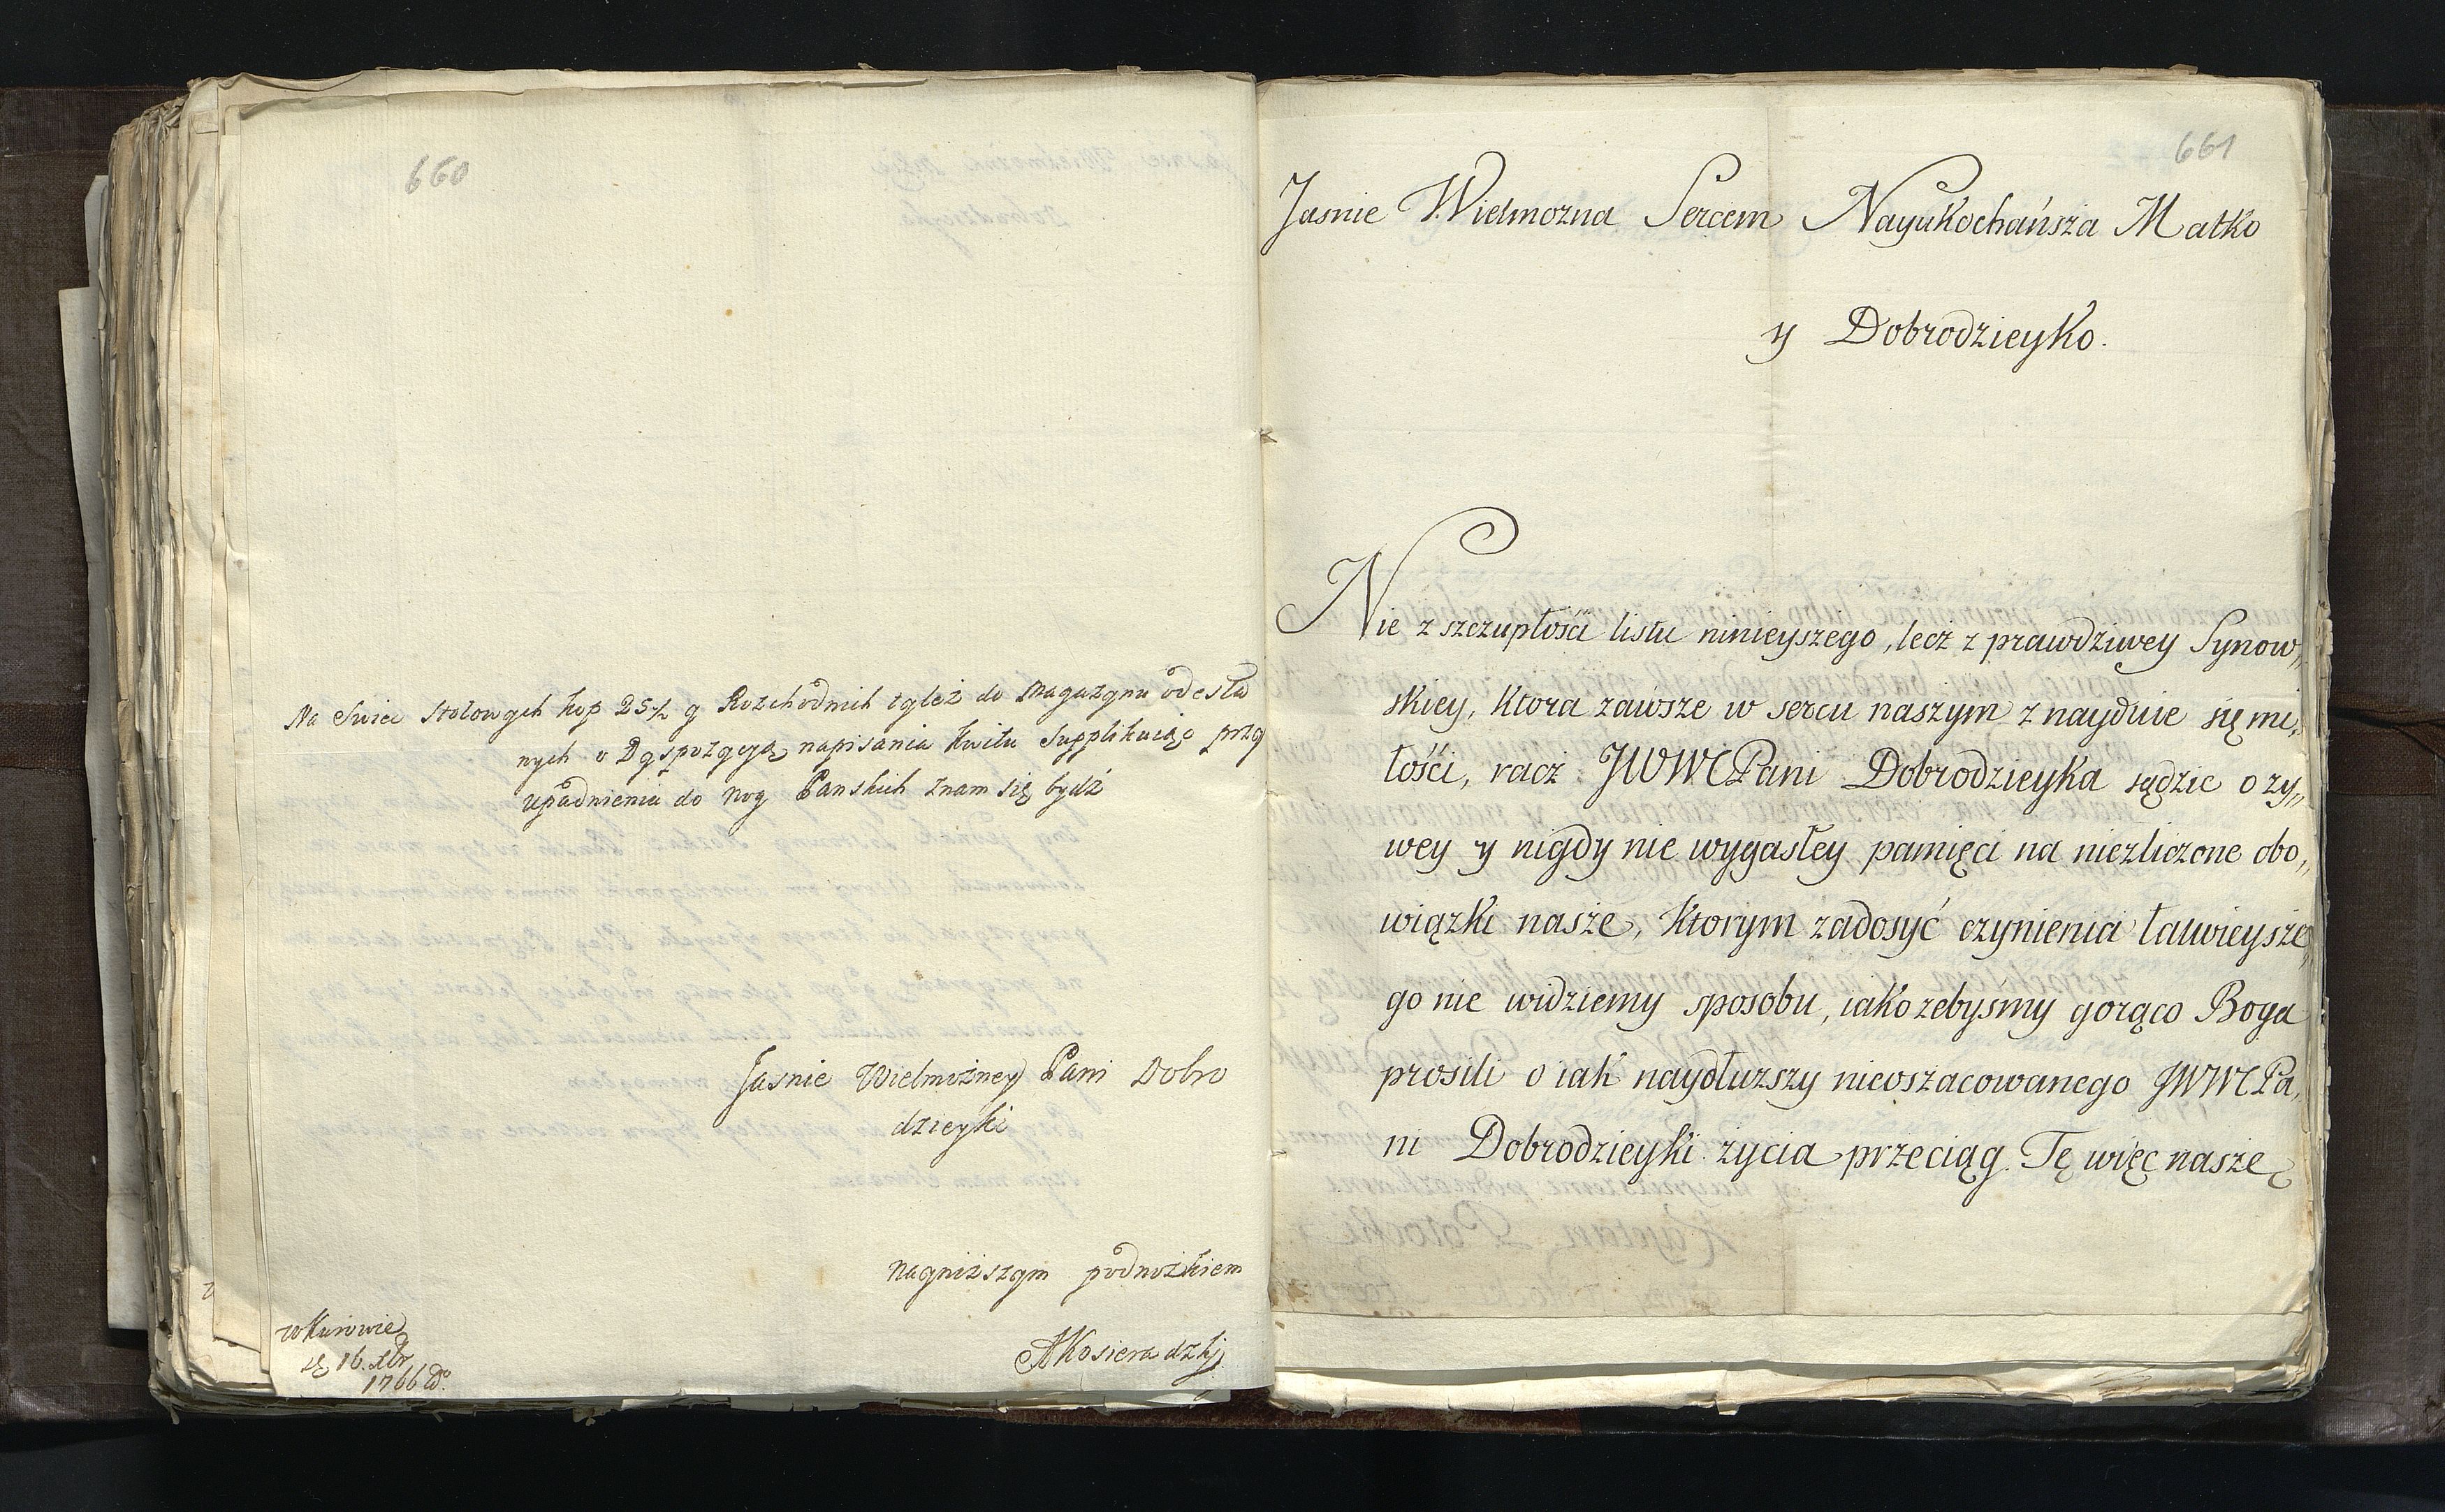 660
Na Swiec Stolowych kop 25 1/2 y Rozchodnich tyleż do Magazynu odesła
nych o Dyspozycyą napisania kwitu Supplikuiąc przy
upadnieniu do nog Panskich znam się bydź
Jasnie Wielmożney Pani Dobro
dzieyki
nayniższym podnożkiem
AKosieradzkj
w Kurowie
16. Xbr
1766
661
Jasnie Wielmozna Sercem Nayukochańsza Matko
y Dobrodzieyko.
Nie z szczupłości listu ninieyszego, lecz z prawdziwey Synow„
skiey, ktora zawsze w sercu naszym znayduie się mi„
łości, racz JWWMPani Dobrodzieyka sądzic o zy„
wey y nigdy nie wygasłey pamięci na niezliczone obo„
wiązki nasze, ktorym zadosyć czynienia łatwieysze„
go nie widziemy sposobu, iako zebyśmy gorąco Boga
prosili o iak naydłuzszy nieoszacowanego JWWMPa„
ni Dobrodzieyki życia przeciąg. Tę więc naszę